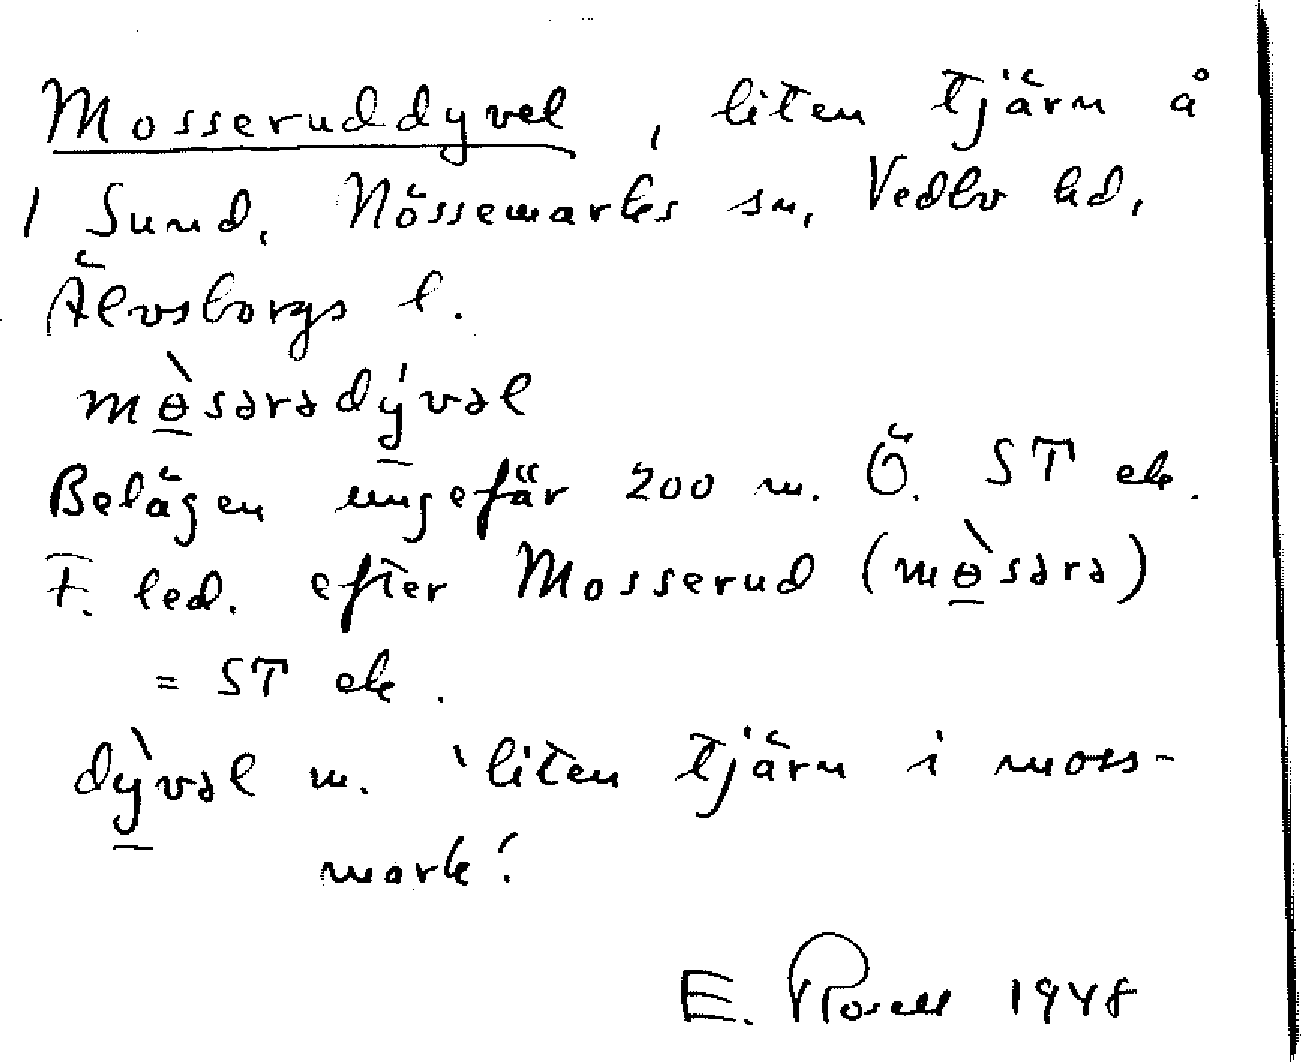 Mosseruddyvel, liten tjärn å
1 Sund, Nössemarks sn, Vedbo hd,
Älvsborgs l.
mɵ̀sərədývəl
Belägen ungefär 200 m. Ö. ST ek.
F. led. efter Mosserud (mɵ̀sərə)
= ST ek.
dỳvəl m. 'liten tjärn i moss-
mark'.
E. Rosell 1948